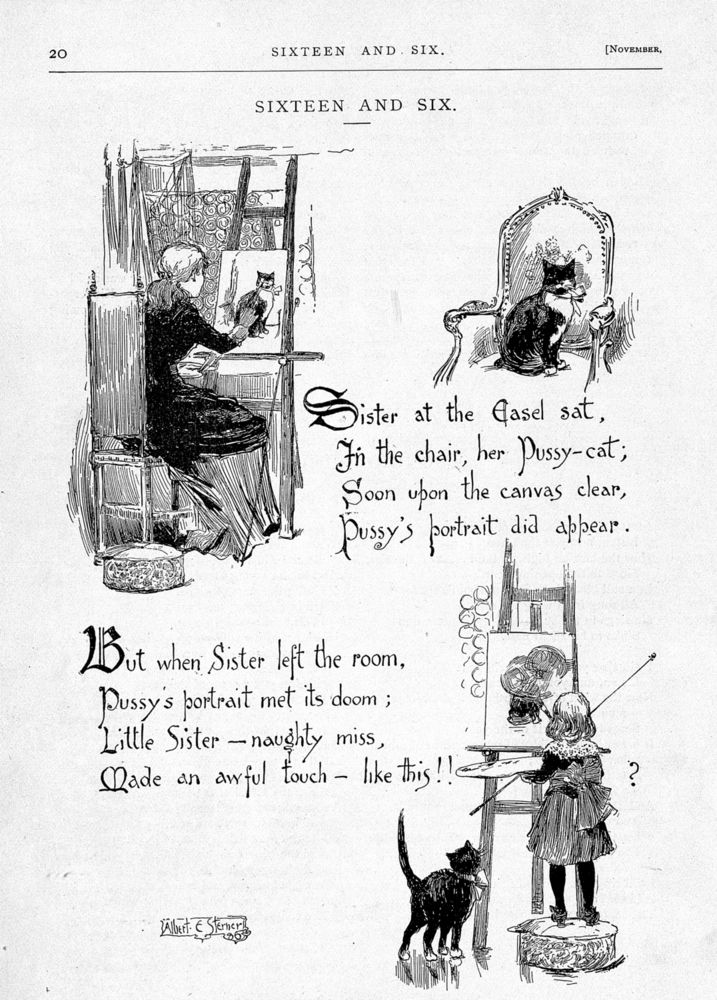 20 SIXTEEN AND SIX. [NOVEMBER,
SIXTEEN AND SIX.
Sister at the Easel sat,
In the chair, her Pussy-cat;
Soon upon the canvas clear,
Pussy's portrait did appear.
But when Sister left the room,
Pussy's portrait met its doom;
Little Sister — naughty miss,
Made an awful touch — like this!! ?
Albert E Sterner